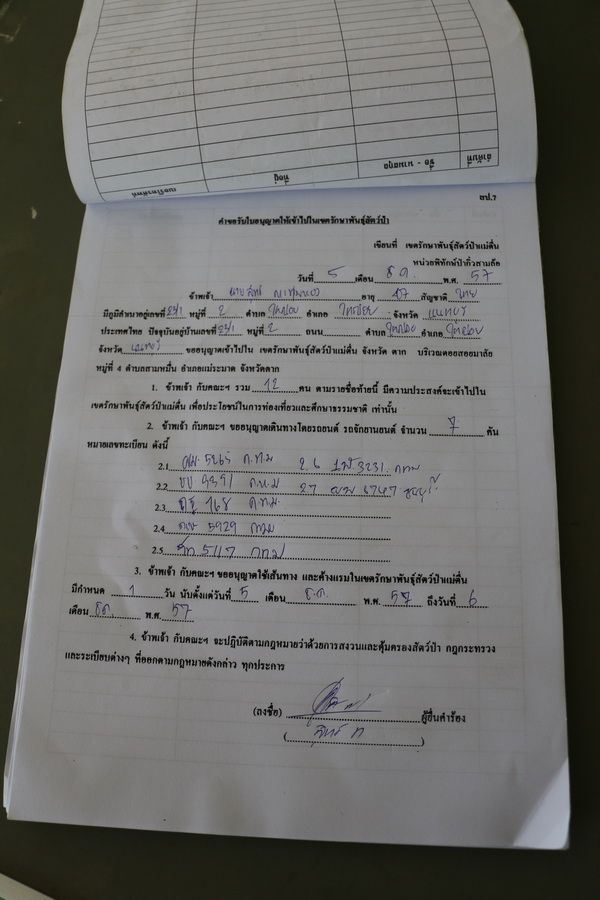 ลำดับที่ ชื่อ - นามสกุล ที่อยู่ เบอร์โทรศัพท์
สป.7
คำขอรับใบอนุญาตให้เข้าไปในเขตรักษาพันธุ์สัตว์ป่า
เขียนที่ เขตรักษาพันธุ์สัตว์ป่าแม่ตื่น
หน่วยพิทักษ์ป่ากิ่วสามล้อ
วันที่ 5 เดือน ธ.ค. พ.ศ. 57
ข้าพเจ้า อายุ 47 สัญชาติ ไทย
มีภูมิลำเนาอยู่เลขที่ หมู่ที่ 2 ตำบล อำเภอ จังหวัด นนทบุรี
ประเทศไทย ปัจจุบันอยู่บ้านเลขที่ หมู่ที่ 2 ถนน ตำบล อำเภอ
จังหวัด นนทบุรี ขออนุญาตเข้าไปใน เขตรักษาพันธุ์สัตว์ป่าแม่ตื่น จังหวัด ตาก บริเวณดอยสอยมาลัย
หมู่ที่ 4 ตำบลสามหมื่น อำเภอแม่ระมาด จังหวัดตาก
1. ข้าพเจ้า กับคณะฯ รวม 12 คน ตามรายชื่อท้ายนี้ มีความประสงค์จะเข้าไปใน
เขตรักษาพันธุ์สัตว์ป่าแม่ตื่น เพื่อประโยชน์ในการท่องเที่ยวและศึกษาธรรมชาติ เท่านั้น
2. ข้าพเจ้า กับคณะฯ ขออนุญาตเดินทางโดยรถยนต์ รถจักยานยนต์ จำนวน 7 คัน
หมายเลขทะเบียน ดังนี้
2.1 ก.ท.ม 2.6 3231 กทม
2.2 9391 ก.ท.ม 2.7 6747
2.3 168 ก.ท.ม
2.4 5929 กทม
2.5 5117 กทม
3. ข้าพเจ้า กับคณะฯ ขออนุญาตใช้เส้นทาง และค้างแรมในเขตรักษาพันธุ์สัตว์ป่าแม่ตื่น
มีกำหนด 1 วัน นับตั้งแต่วันที่ 5 เดือน ธ.ค. พ.ศ. 57 ถึงวันที่ 6
เดือน ธ.ค. พ.ศ. 57
4. ข้าพเจ้า กับคณะฯ จะปฏิบัติตามกฎหมายว่าด้วยการสงวนและคุ้มครองสัตว์ป่า กฎกระทรวง
และระเบียบต่างๆ ที่ออกตามกฎหมายดังกล่าว ทุกประการ
(ลงชื่อ) ผู้ยื่นคำร้อง